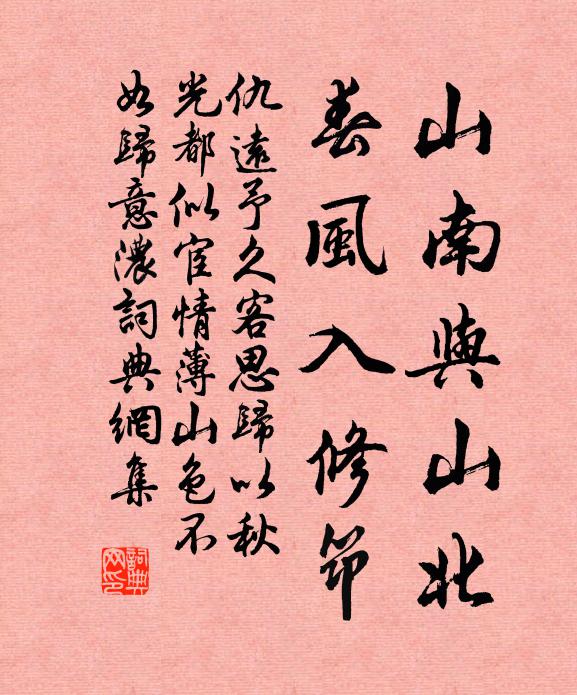 山南與山北
春風入修筇
仇遠予久客思歸以秋
光都似宦情薄山色不
如歸意濃詞典網集
詞典网印